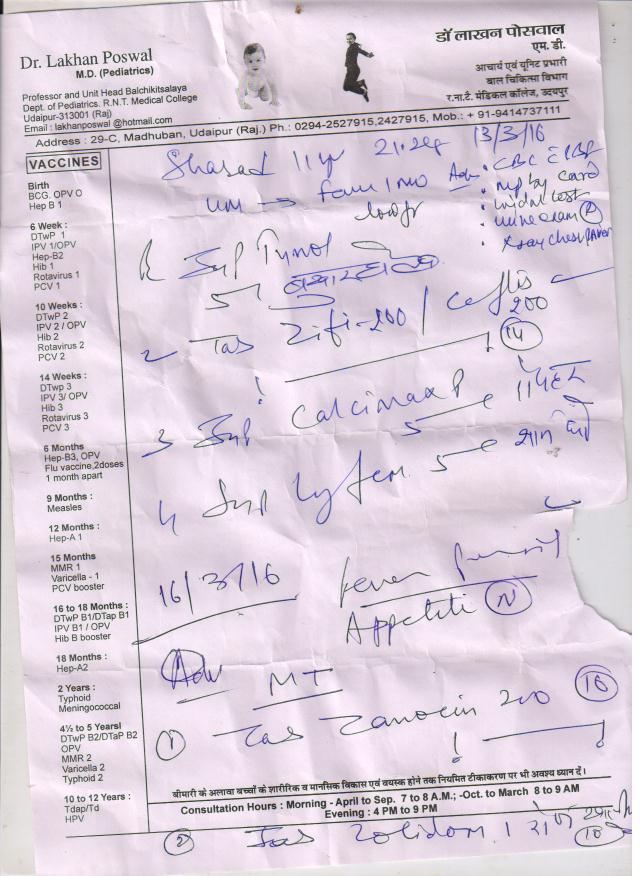 Dr. Lakhan Poswal
M.D. (Pediatrics)
Professor and Unit Head Balchikitsalaya
Dept. of Pediatrics. R.N.T. Medical College
Udaipur-313001 (Raj)
Email : lakhanposwal @hotmail.com
डॉ लाखन पोसवाल
एम. डी.
आचार्य एवं यूनिट प्रभारी
बाल चिकित्सा विभाग
र.ना.टै. मेडिकल कॉलेज, उदयपुर
Address : 29-C, Madhuban, Udaipur (Raj.) Ph.: 0294-2527915,2427915, Mob.: + 91-9414737111
VACCINES
Birth
BCG, OPV O
Hep B 1
6 Week :
DTwP 1
IPV 1/OPV
Hep-B2
Hib 1
Rotavirus 1
PCV 1
10 Weeks :
DTwP 2
IPV 2 / OPV
Hib 2
Rotavirus 2
PCV 2
14 Weeks :
DTwp 3
IPV 3/ OPV
Hib 3
Rotavirus 3
PCV 3
6 Months
Hep-B3, OPV
Flu vaccine,2doses
1 month apart
9 Months :
Measles
12 Months :
Hep-A 1
15 Months
MMR 1
Varicella - 1
PCV booster
16 to 18 Months :
DTwP B1/DTap B1
IPV B1 / OPV
Hib B booster
18 Months :
Hep-A2
2 Years :
Typhoid
Meningococcal
4½ to 5 Yearsl
DTwP B2/DTaP B2
OPV
MMR 2
Varicella 2
Typhoid 2
10 to 12 Years :
Tdap/Td
HPV
Sharad 11 yr 21.2kg 13/3/16
Adv • CBC
• mp by card
• widal test
• urine exam
• X ray chest
Tab Zifi-200 /
200
14
3 Syp Calcimax P 5
4 Syp 5
16/3/16
fever
Appetite N
Adv MT
1 Tab Zanocin 200 10
बीमारी के अलावा बच्चों के शारीरिक व मानसिक विकास एवं वयस्क होने तक नियमित टीकाकरण पर भी अवश्य ध्यान दें।
Consultation Hours : Morning - April to Sep. 7 to 8 A.M.; -Oct. to March 8 to 9 AM
Evening : 4 PM to 9 PM
2 Tab 10